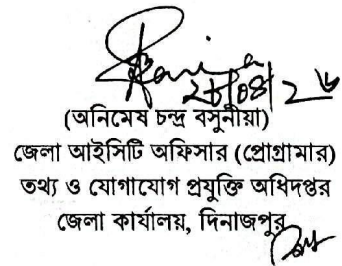 (অনিমেষ চন্দ্র বসুনীয়া)
জেলা আইসিটি অফিসার (প্রোগ্রামার)
তথ্য ও যোগাযোগ প্রযুক্তি অধিদপ্তর
জেলা কার্যালয়, দিনাজপুর